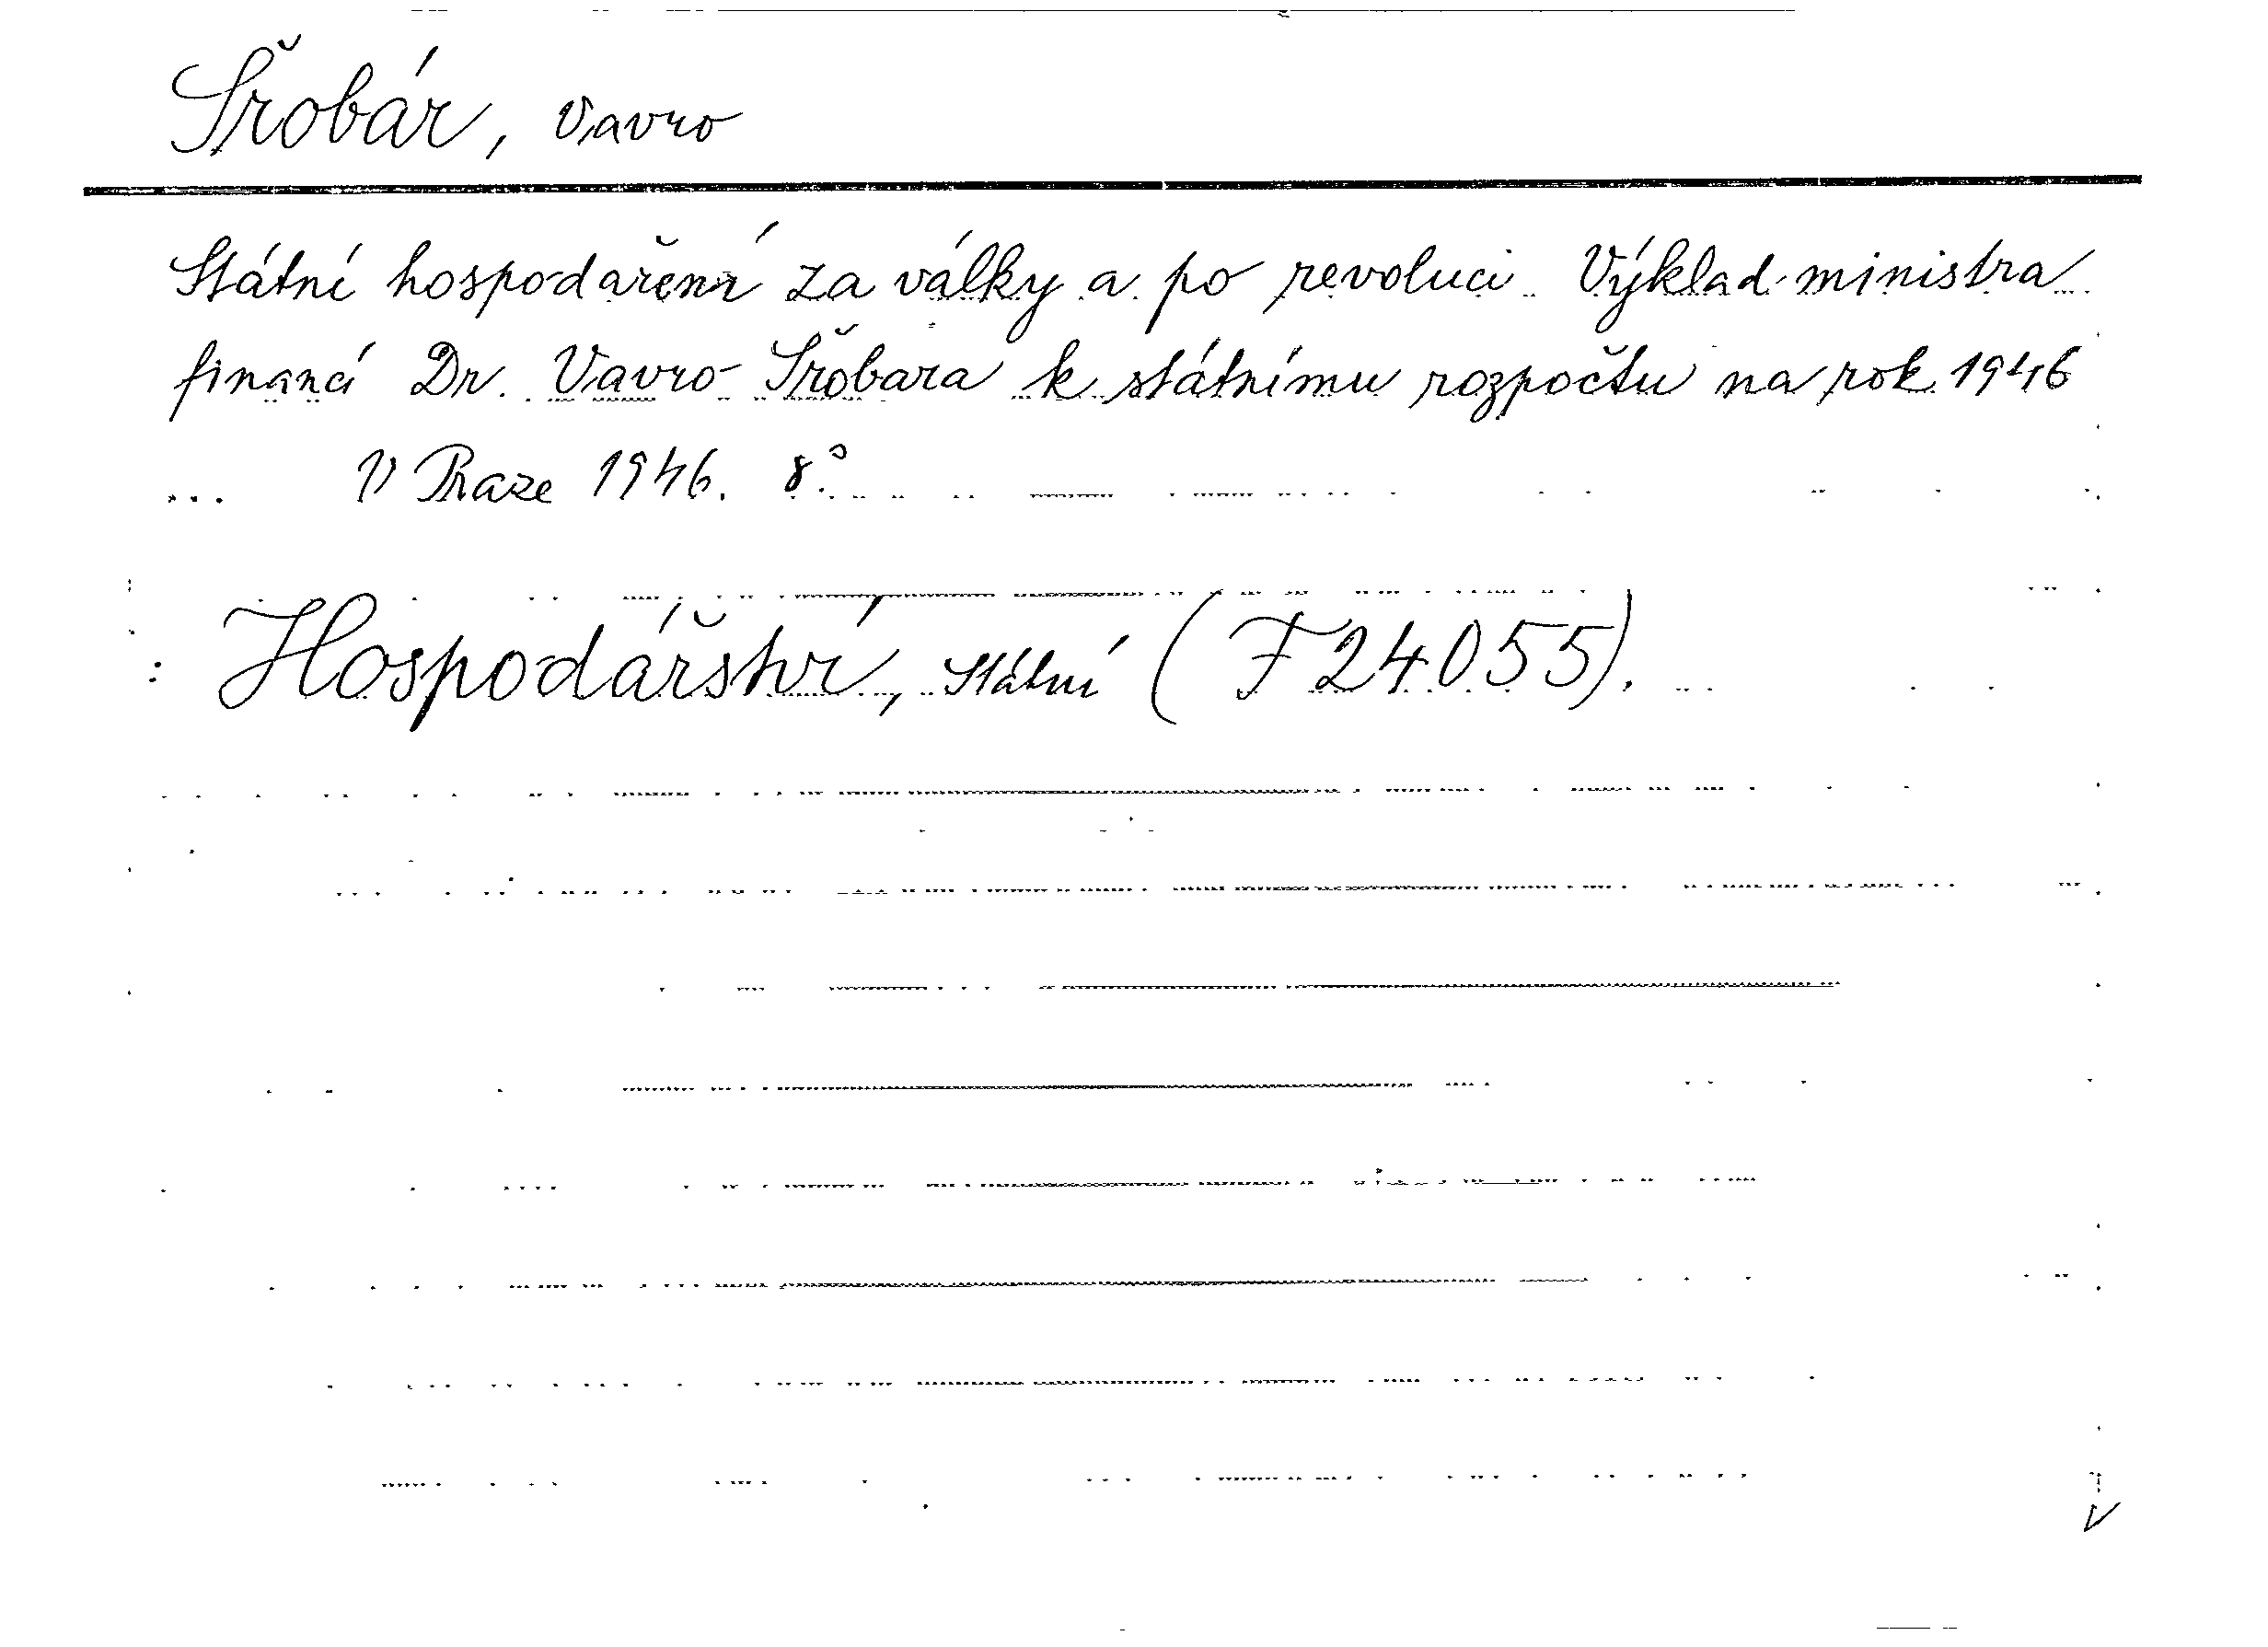 Šrobár, Vavro
Státní hospodaření za války a po revoluci. Výklad ministra
financí Dr. Vavro Šrobara k státnímu rozpočtu na rok 1946
... V Praze 1946. 8°.
Hospodářství, státní (F 24055).
V